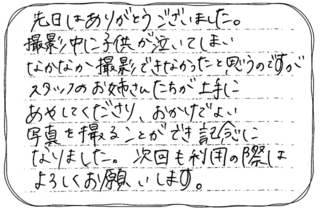 先日はありがとうございました。
撮影中に子供が泣いてしまい
なかなか撮影できなかったと思うのですが
スタッフのお姉さんたちが上手に
あやしてくださり、おかげでよい
写真を撮ることができ記念に
なりました。次回も利用の際は
よろしくお願いします。